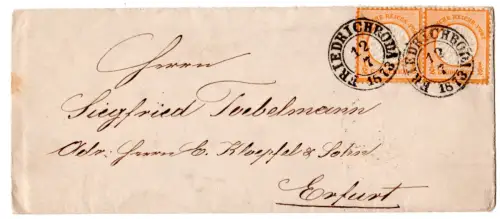 FRIEDRICHRODA 12 7 1873
FRIEDRICHRODA 12 7 1873
Herrn
Siegfried Toebelmann
Adr: Herrn C. Kloepfel & Sohn.
Erfurt